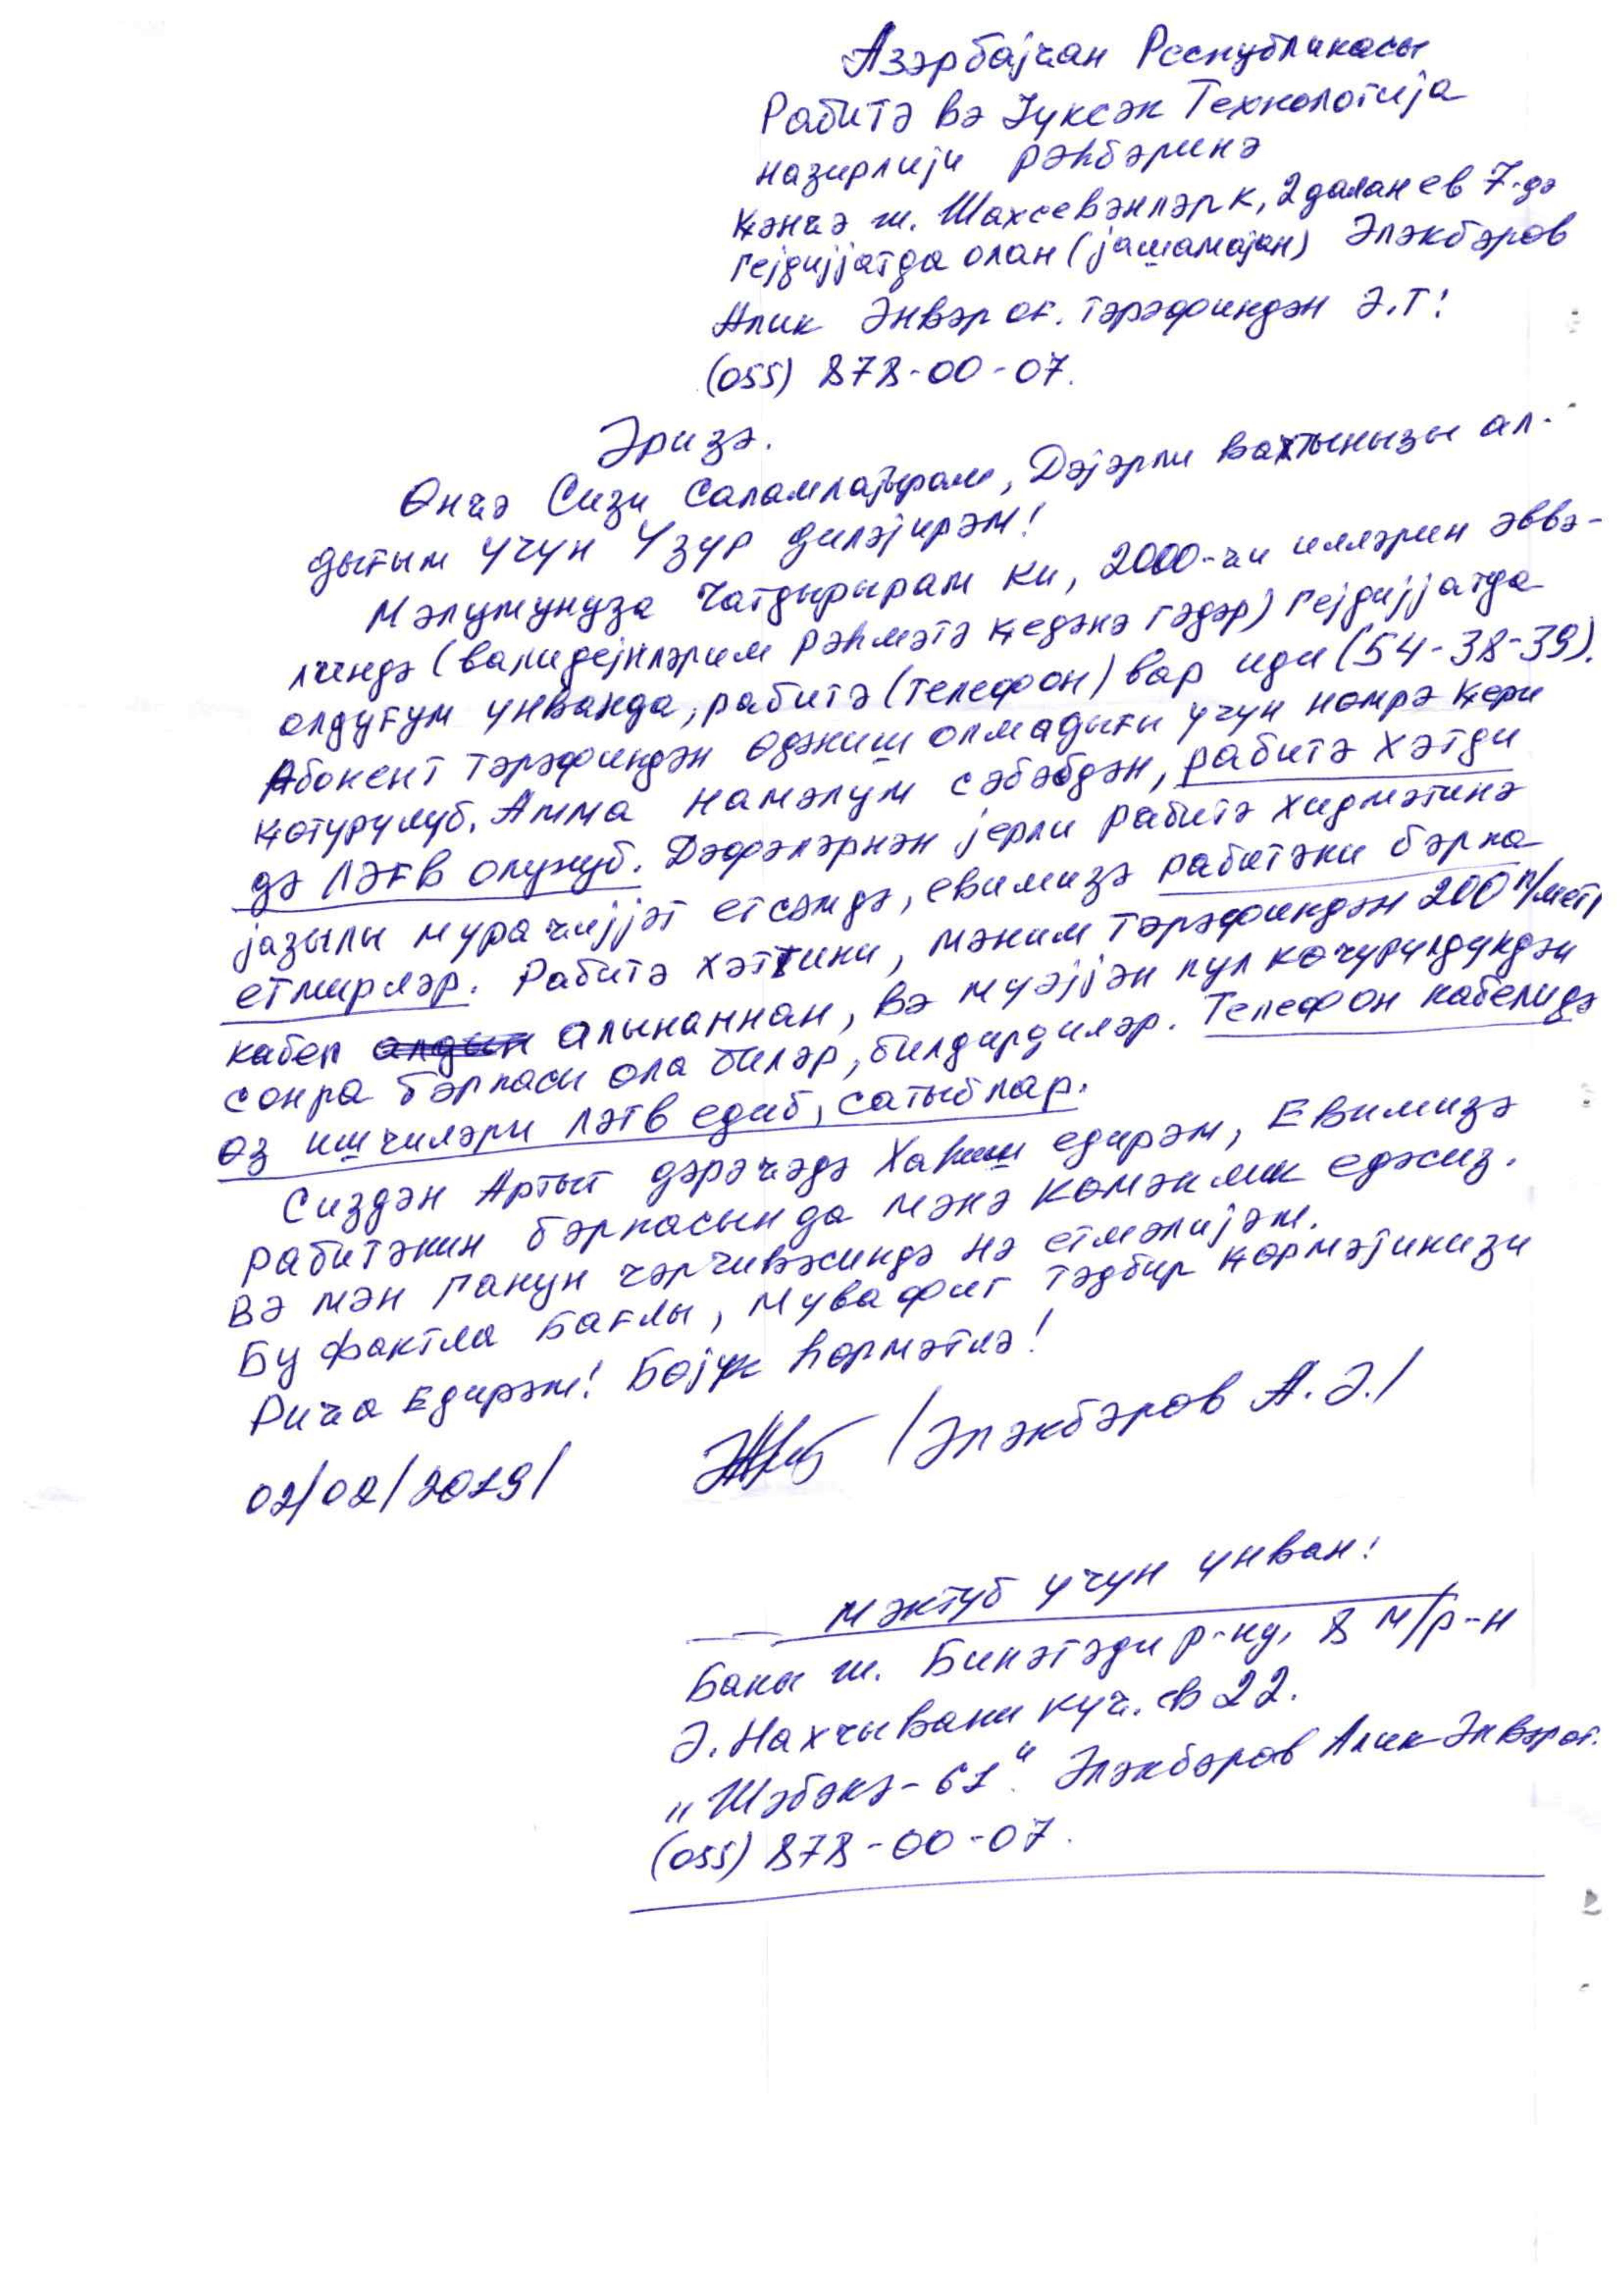 Азәрбајҹан Республикасы
Рабитә вә Јүксәк Технолоҝија
назирлији рәһбәринә
Ҝәнҹә ш. Шахсевәнләр к, 2 далан ев 7-дә
гејдијјатда олан (јашамајан) Әләкбәров
Алик Әнвәр оғ. тәрәфиндән Ә.Т:
(055) 878-00-07.
Әризә.
Өнҹә Сизи Саламлајырам, Дәјәрли вахтынызы ал-
дығым үчүн Үзүр диләјирәм!
Мәлумунуза Чатдырырам ки, 2000-ҹи илләрин әввә-
линдә (валидејнләрим рәһмәтә ҝедәнә гәдәр) гејдијјатда
олдуғум үнванда, рабитә (телефон) вар иди (54-38-39).
Абонент тәрәфиндән өдәниш олмадығы үчүн нөмрә ҝери
ҝөтүрүлүб. Амма намәлум сәбәбдән, рабитә хәтди
дә ләғв олунуб. Дәфәләрнән јерли рабитә хидмәтинә
јазылы мүраҹијјәт етсәмдә, евимизә рабитәни бәрпа
етмирләр. Рабитә хәттини, мәним тәрәфиндән 200 п/мет
кабел алынаннан, вә мүәјјән пул көчүрүлдүкдән
сонра бәрпасы ола биләр, билдирдиләр. Телефон кабелидә
өз ишчиләри ләғв едиб, сатыблар.
Сиздән Артыг дәрәҹәдә Хаһиш едирәм, Евимизә
рабитәнин бәрпасында мәнә көмәклик едәсиз.
Вә мән ганун чәрчивәсиндә нә етмәлијәм.
Бу фактла Бағлы, мувафиг тәдбир ҝөрмәјинизи
Риҹа Едирәм! Бөјүк һөрмәтлә!
02/02/2019/ /Әләкбәров А.Ә./
мәктуб үчүн үнван:
Бакы ш. Бинәгәди р-ну, 8 м/р-н
Ә. Нахчывани күч. ев 22.
"Шәбәкә-61". Әләкбәров Алик Әнвәр оғ.
(055) 878-00-07.